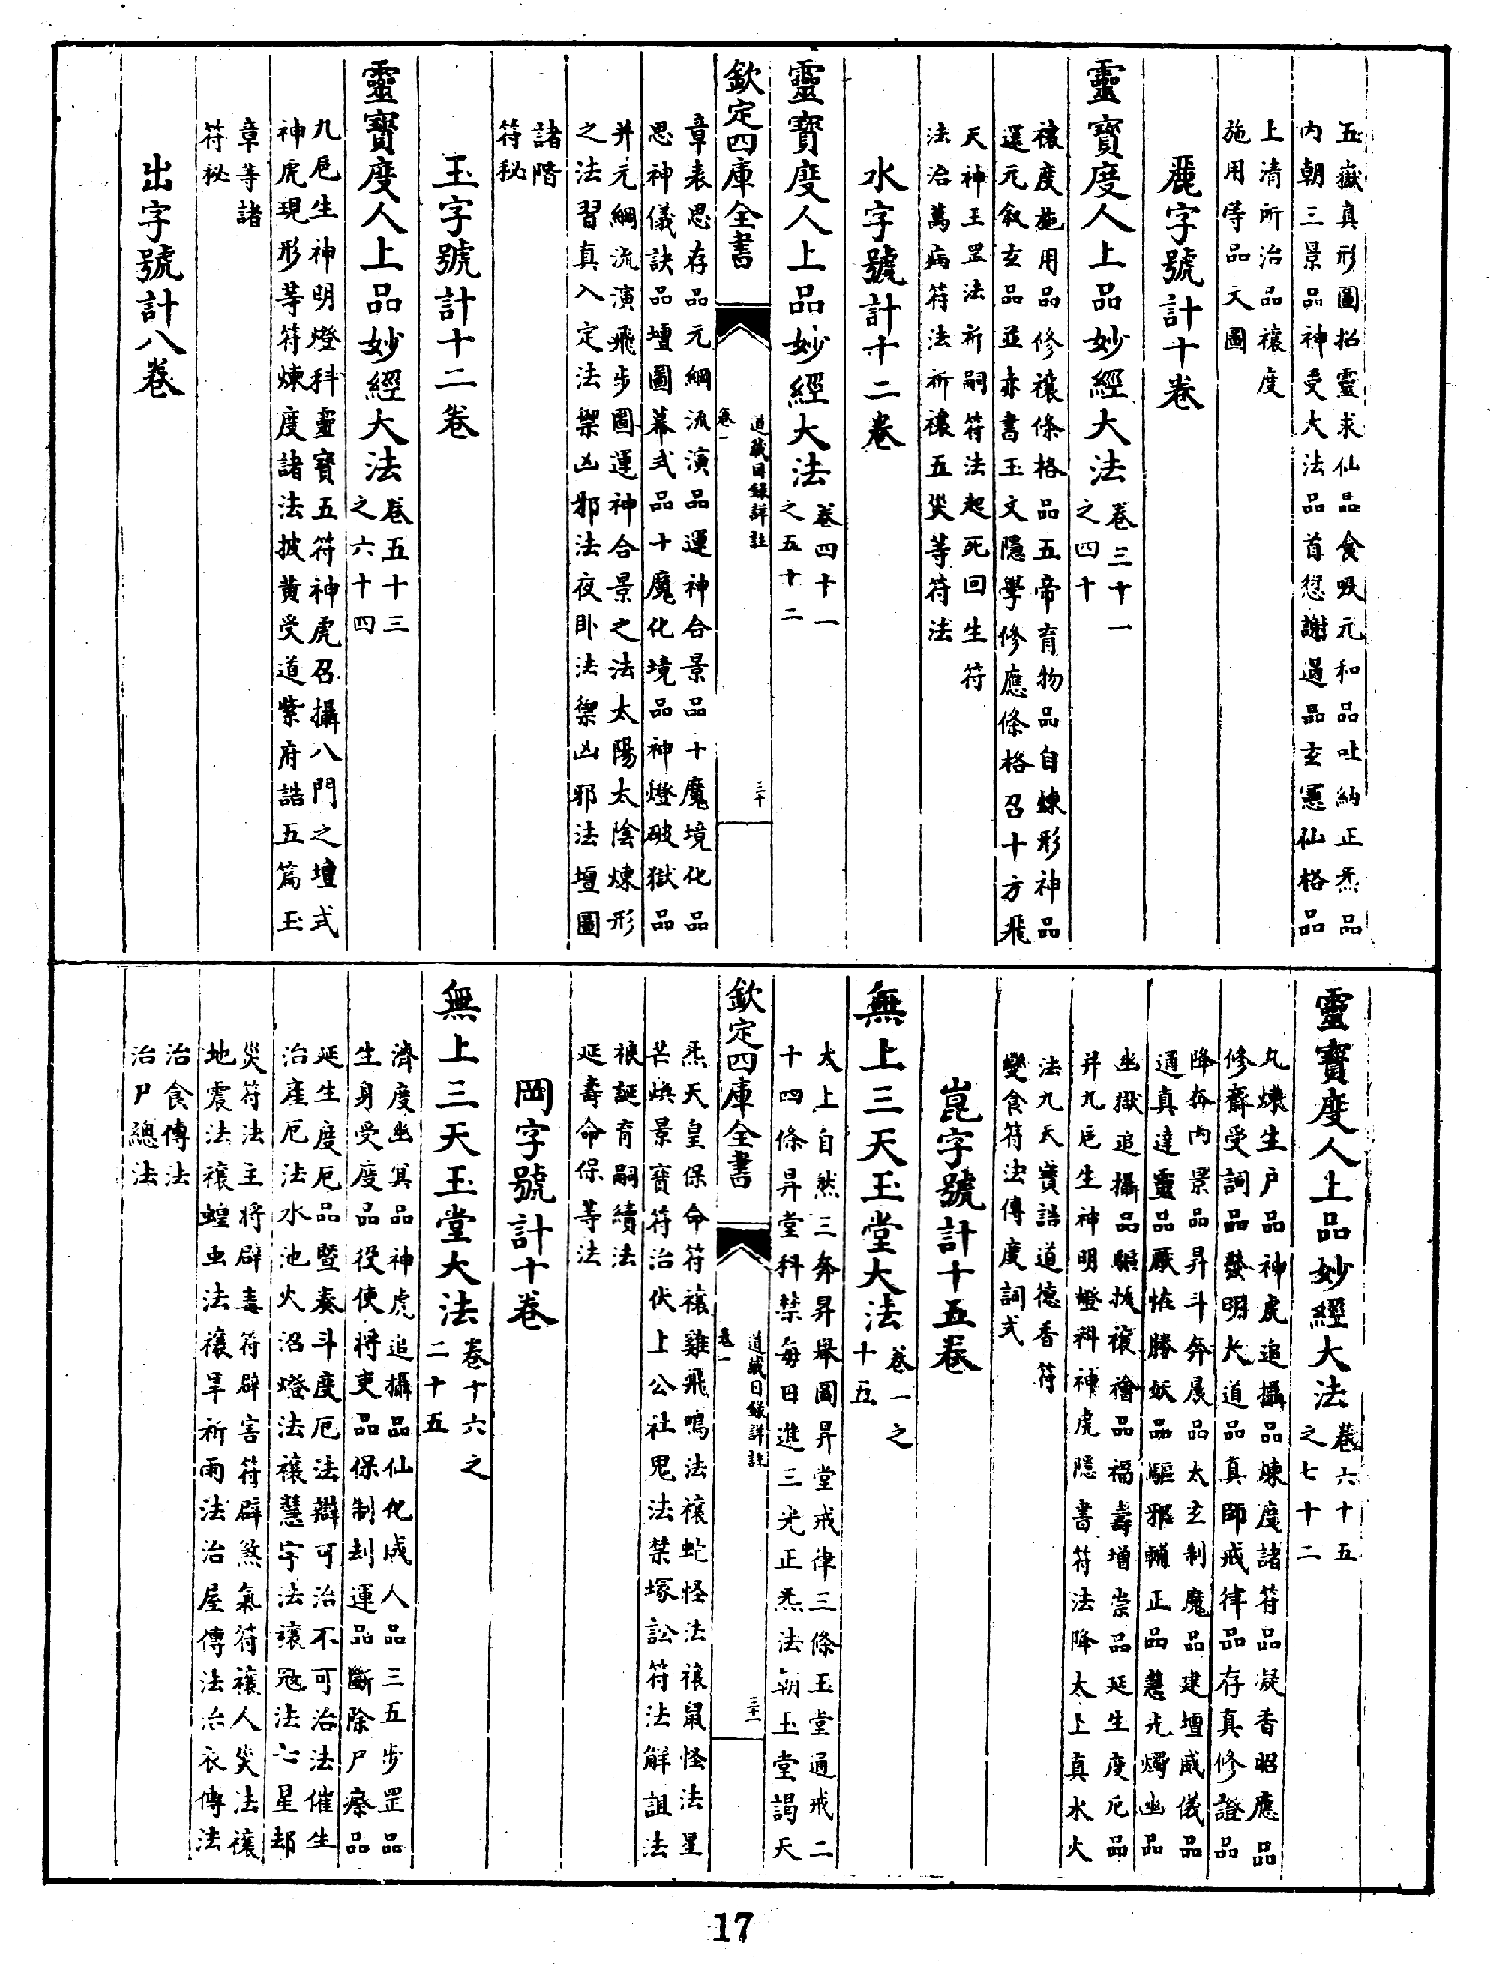 五嶽真形圖招靈求仙品食吸元和品吐納正炁品
内朝三景品神受大法品首愆謝過品玄憲仙格品
上清所治品禳度
施用等品文圖
麗字號計十卷
靈寶度人上品妙經大法卷三十一
之四十
禳度施用品修禳條格品五帝育物品自鍊形神品
還元叙玄品並赤書玉文隱學修應條格召十方飛
天神王罡法祈嗣符法起死回生符
法治萬病符法祈禳五災等符法
水字號計十二卷
靈寶度人上品妙經大法卷四十一
之五十二
欽定四庫全書
道藏目録詳註
卷一
三十
章表思存品元綱流演品運神合景品十魔境化品
思神儀訣品壇圖幕式品十魔化境品神燈破獄品
并元綱流演飛步圖運神合景之法太陽太陰煉形
之法習真入定法禦凶邪法夜卧法禦凶邪法壇圖
諸階
符秘
玉字號計十二卷
靈寶度人上品妙經大法卷五十三
之六十四
九戹生神明燈科靈寶五符神虎召攝八門之壇式
神虎現形等符煉度諸法披黄受道紫府誥五篇玉
章等諸
符秘
出字號計八卷
靈寶度人上品妙經大法卷六十五
之七十二
九煉生尸品神虎追攝品煉度諸符品凝香昭應品
修齋受詞品發明大道品真師戒律品存真修證品
降奔内景品昇斗奔晨品太玄制魔品建壇威儀品
通真達靈品厭恠勝妖品驅邪輔正品慧光燭幽品
幽獄追攝品驅祓禳禬品福壽增崇品延生度厄品
并九戹生神明燈科神虎隱書符法降太上真水火
法九天寶誥道德香符
變食符法傳度詞式
崑字號計十五卷
無上三天玉堂大法卷一之
十五
太上自然三奔昇舉圖昇堂戒律三條玉堂通戒二
十四條昇堂科禁每日進三光正炁法朝玉堂謁天
欽定四庫全書
道藏目録詳註
卷一
三十一
炁天皇保命符禳雞飛鳴法禳蛇怪法禳鼠怪法星
芒煥景寶符治伏上公社鬼法禁塚訟符法解詛法
禳誕育嗣續法
延壽命保等法
岡字號計十卷
無上三天玉堂大法卷十六之
二十五
濟度幽冥品神虎追攝品仙化成人品三五步罡品
生身受度品役使將吏品保制刦運品斷除尸瘵品
延生度厄品暨奏斗度厄法辯可治不可治法催生
治產厄法水池火沼燈法禳慧孛法禳冦法七星却
災符法主將辟毒符辟害符辟煞氣符禳人災法禳
地震法禳蝗虫法禳旱祈雨法治屋傳法治衣傳法
治食傳法
治尸總法
17